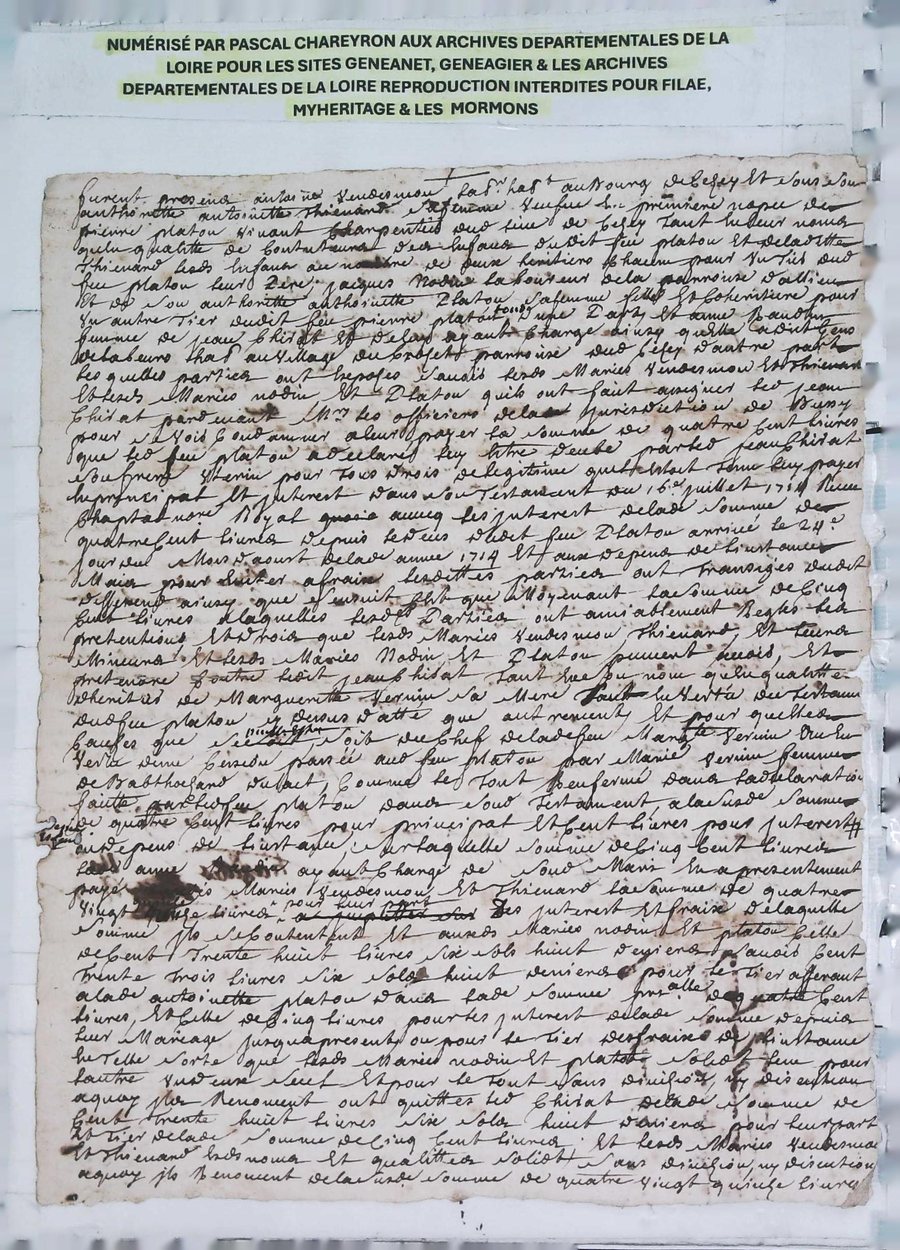 NUMÉRISÉ PAR PASCAL CHAREYRON AUX ARCHIVES DEPARTEMENTALES DE LA
LOIRE POUR LES SITES GENEANET, GENEAGIER & LES ARCHIVES
DEPARTEMENTALES DE LA LOIRE REPRODUCTION INTERDITES POUR FILAE,
MYHERITAGE & LES MORMONS
furent presens antoine Vendesmou au Bourg de Et Sous Son
anthoritte antoinette Thienard Sa femme Veufve En premiere nopce de
pierre platon Vivant Charpentier dud lieu de tant En leur noms
qu'en qualitte de Contuteurs des Enfans dudit feu platon Et de ladette
Thienard lesds Enfans au nombre de deux heritiers Chacun pour Un Tier dud
feu platon leur Pere, jacques Nodin laboureur de la parroisse d'allieu
Et de Son authoritte anthoinette Platon Sa femme fille Et Coheritiere pour
Un autre Tier dudit feu pierre platon dune Part, Et anne
femme de jean Chirat Et de luy ayant Charge ainsy quelle a dit
au Village du parroisse dud d'autre part
Lesquelles parties ont Exposés Sauois lesds Mariés Vendesmou Et Thienard
Et lesds Mariés nodin, Et Platon quils ont fait assigner led jean
Chirat pardevant Mrs les officiers de la Jurisdiction de Bussy
pour Se Voir Condamner a leur payer la Somme de quatre Cent livres
que led feu platon a declaré luy Etre deube par led jean Chirat
Son frere Uterin pour Tous Drois de legitime quil Estoit Tenu luy payer
En principal Et jnterest dans Son Testament du 16e juillet 1714 Receu
Chaptal nore Royal auecq les jnterest de lade Somme de
quatre Cent livres depuis le deces dudet feu Platon arrivé le 24e
jour du Mois d'aoust de lade année 1714 Et aux depens de linstance
Mais pour Euiter a fraix lesdittes parties ont Transigés dudit
differend ainsy que Sensuit que Moyenant la Somme de Cinq
Cent livres a laquelles lesds Parties ont amiablement Reglés les
pretentions Et drois que lesds Mariés Vendesmou Thienard, Et leurs
Mineurs Et lesds Mariés Nodin Et Platon peuuent auois, Et
pretendre Contre ledit jean Chirat Tant En Son nom qu'en qualitte
dheritier de Marguerite Vernin Sa Mere En Vertu du Testament
dud feu platon cy dessus datté que autrement, Et pour quelles
Causes que Ce Soit, Soit du Chef de lade feu Margte Vernin Ou En
Vertu dune Cession passée aud feu platon par Marie Vernin femme
de Comme le Tout Renfermé dans la declaration
faitte par led feu platon dans Sond Testament, a lade Somme
de quatre Cent livres pour principal Et Cent livres pour jnterest
aux depens de linstance Sur laquelle Somme de Cinq Cent livres
lade anne ayant Charge de Sond Mary En a presentement
payé Mariés Vendesmou Et Thienard la Somme de quatre
Vingt livres pour leur part Des jnterest Et fraix de laquelle
Somme jls Se Contentent Et auxds Mariés nodin Et platon Celle
de Cent Trente huict livres Six Sols huict deniers, Sauois Cent
Trente Trois livres Six Sols huict deniers pour le Tier afferant
a lade antoinette platon dans lade Somme de quatre Cent
livres, Et Celle de Cinq livres pour les jnterest de lade Somme depuis
leur Mariage jusqua present, ou pour le Tier des fraix de linstance
En Telle Sorte que lesds Mariés nodin Et platon Solidt lun pour
lautre Un deux Seul Et pour le Tout Sans division, ny discution
a quoy jls Renoncent ont quittés led Chirat de lade Somme de
Cent Trente huict livres Six Sols huict deniers pour leur part
Et Tier de lade Somme de Cinq Cent livres Et lesds Mariés Vendesmou
Et Thienard Esds noms Et qualittes Solidt Sans division, ny discution
a quoy jls Renoncent de la Somme de quatre Vingt quinze livres